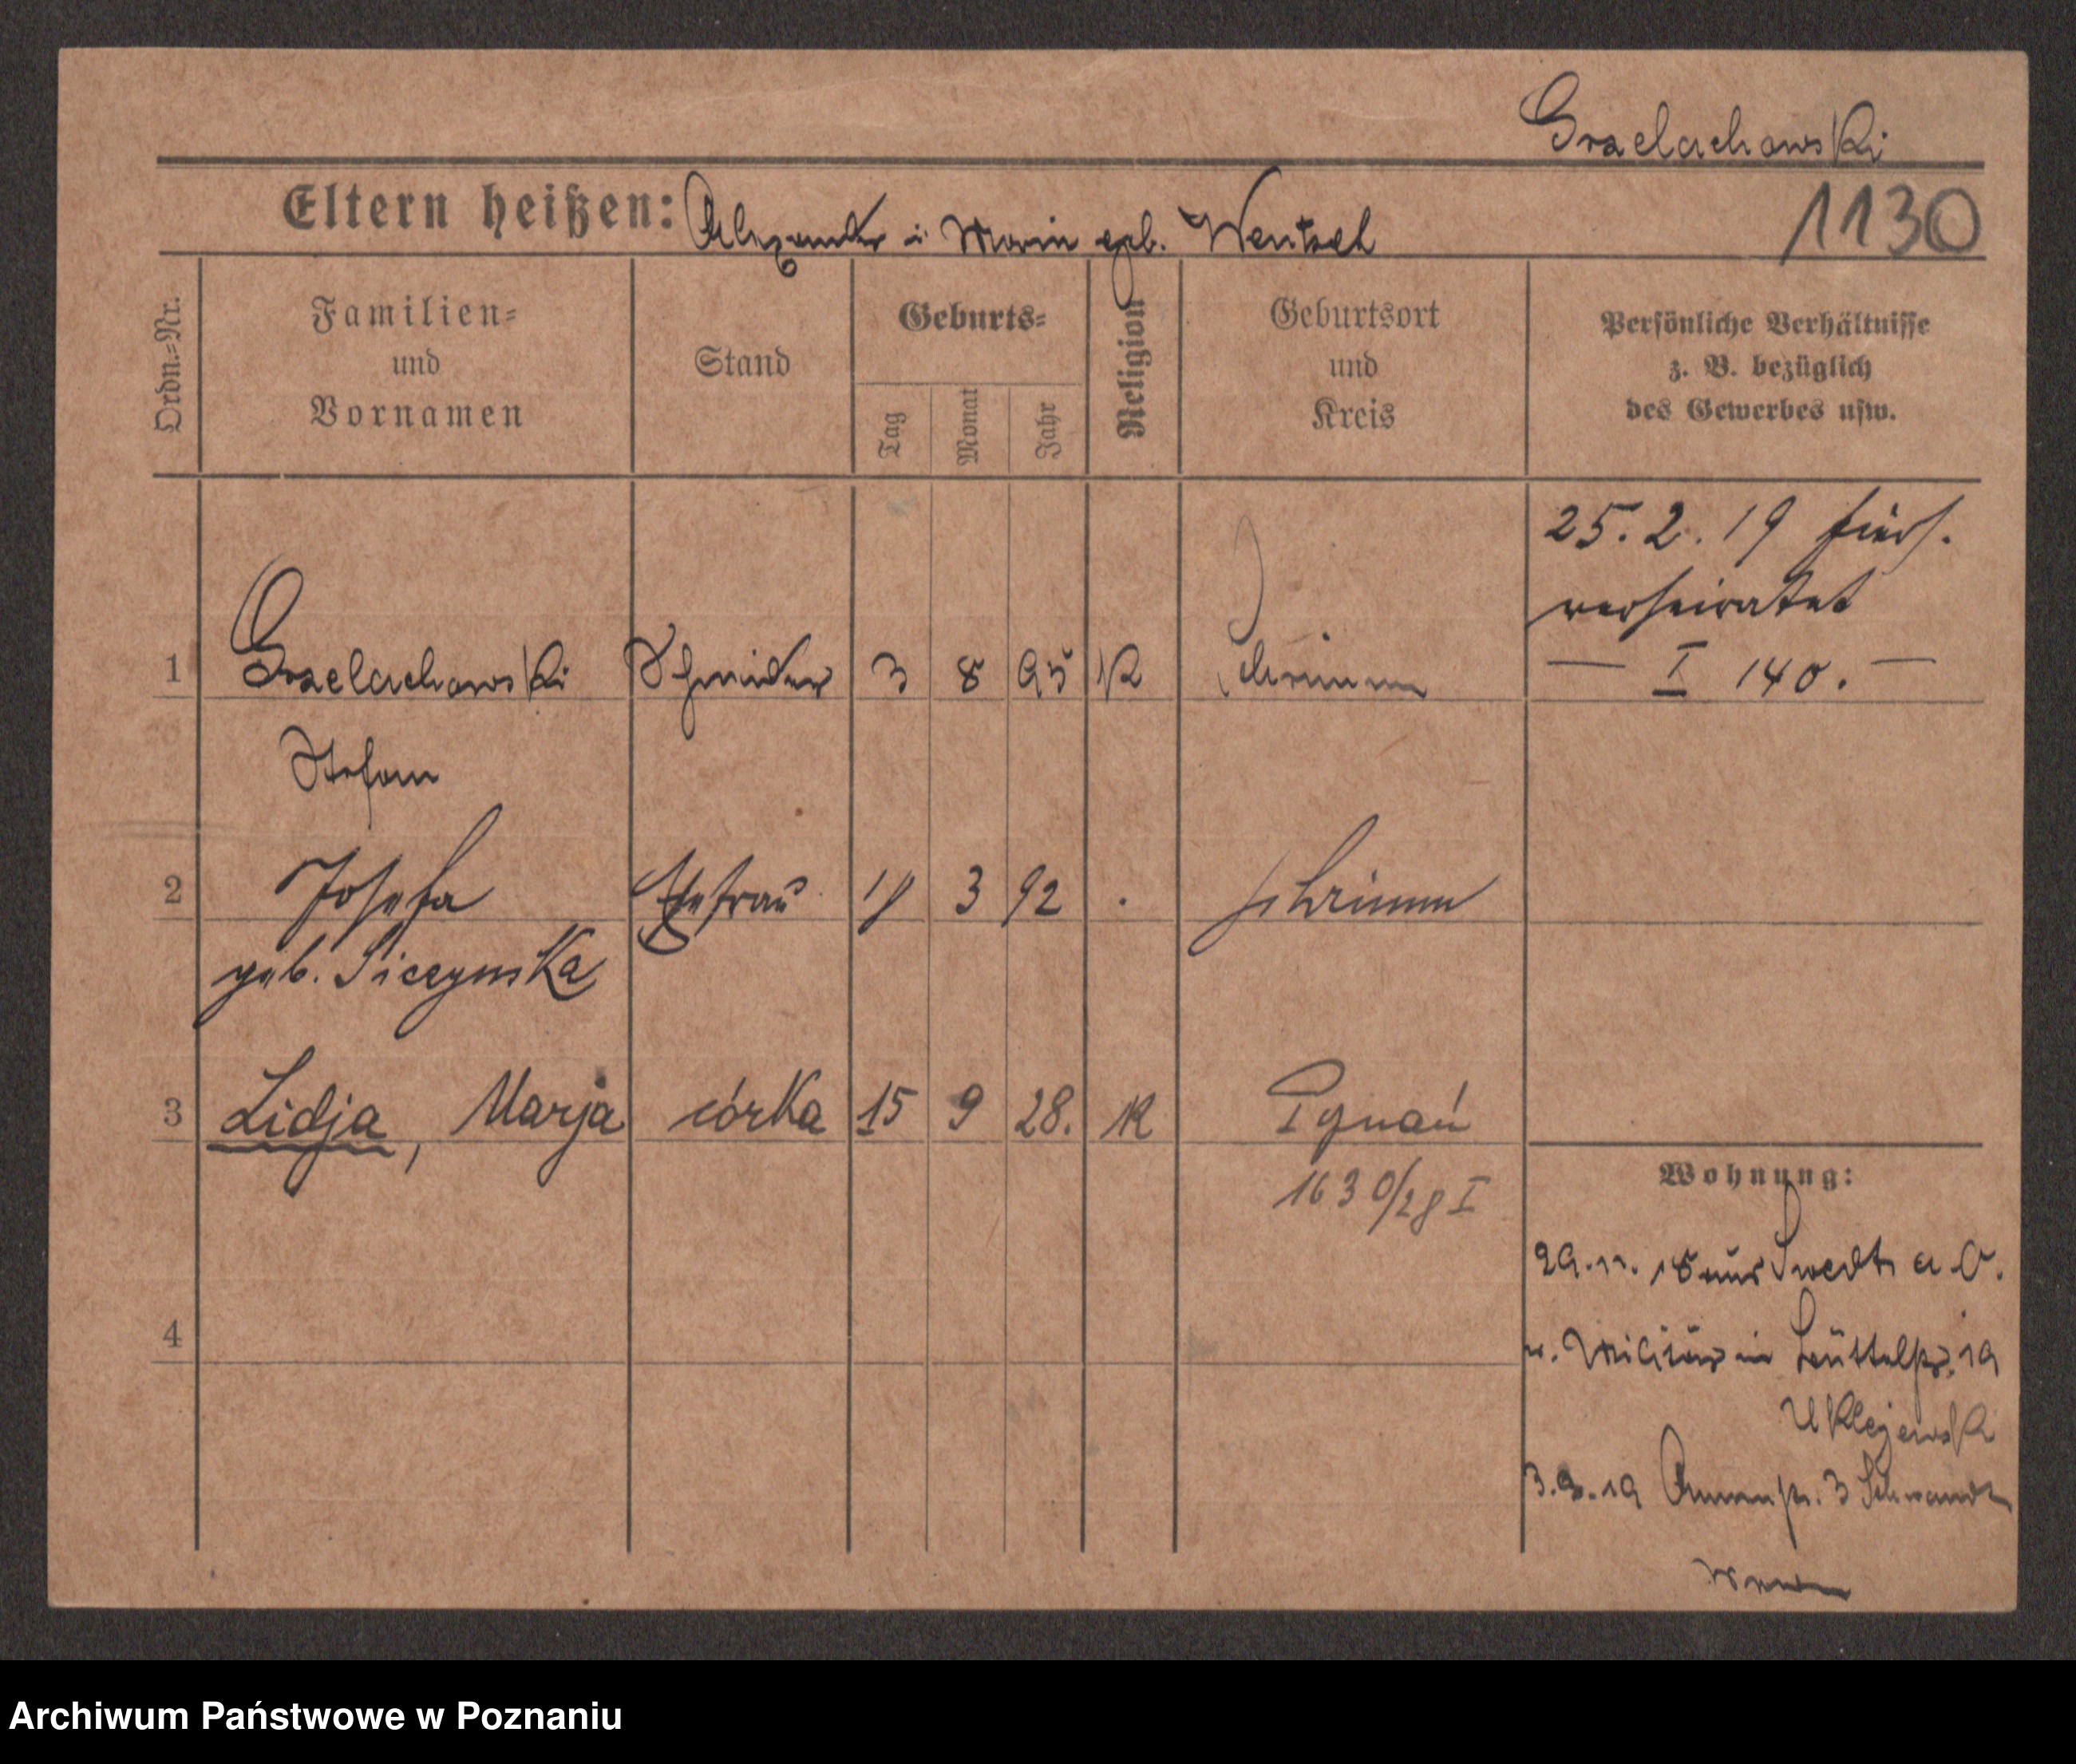 Grzelachowski
Eltern heißen: Alexander u Maria geb. Wentzel
1130
Ordn.=Nr.
Familien=
und
Vornamen
Stand
Geburts=
Tag
Monat
Jahr
Religion
Geburtsort
und
Kreis
Persönliche Verhältnisse
z. B. bezüglich
des Gewerbes usw.
25. 2. 19 hier
verheiratet
— I 140. —
1 Grzelachowski 3 8 95 K Schrimm
Stefan
2 Josefa Ehefrau 3 92 . Schrimm
geb.
3 Lidja, Marja córka 15 9 28. K Poznań
1630/28 I
Wohnung:
29.11.18 aus a. O.
v. Militär in 19
Uklejewski
4
3.9.19 3 Schwandt
Archiwum Państwowe w Poznaniu